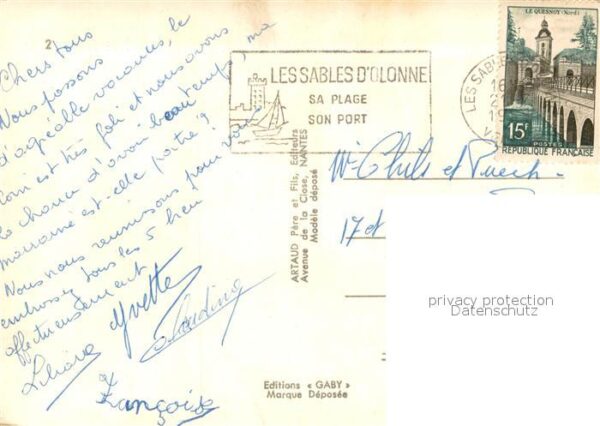 2
Chers tous
Nous passons
d'agréable vacances, le
coin est très joli et nous avons
la chance d'avoir beau temps, ma
marraine est-elle partie ?
Nous nous réunissons pour vous
embrassez tous les 5 bien
affectueusement
Liliane Yvette Claudine
Françoise
LES SABLES D'OLONNE
SA PLAGE
SON PORT
LES SABLES
16
LE QUESNOY (Nord)
15F
POSTES
REPUBLIQUE FRANÇAISE
ARTAUD Père et Fils, Editeurs
Avenue de la Close, NANTES
Modèle déposé
et
17 et
privacy protection
Datenschutz
Editions « GABY »
Marque Déposée